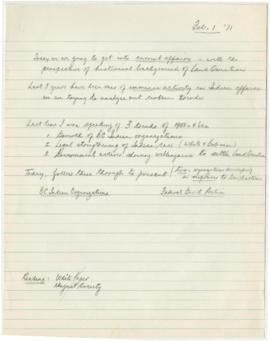 Feb. 1 '71
Today we are going to get into current affairs - with the
perspective of historical background of Land Question
Last 2 years have been ones of immense activity in Indian affairs
so am trying to analyze out various trends
Last time I was speaking of 3 trends of 1960's era
1. Growth of BC Indian organizations
2. Legal strengthening of Indian case (White & Bob case)
3. Government action showing willingness to settle land question
Today, follow these through to present (
BC Indian Organizations Federal Gov't Policy
Reading: White Paper
Unjust Society